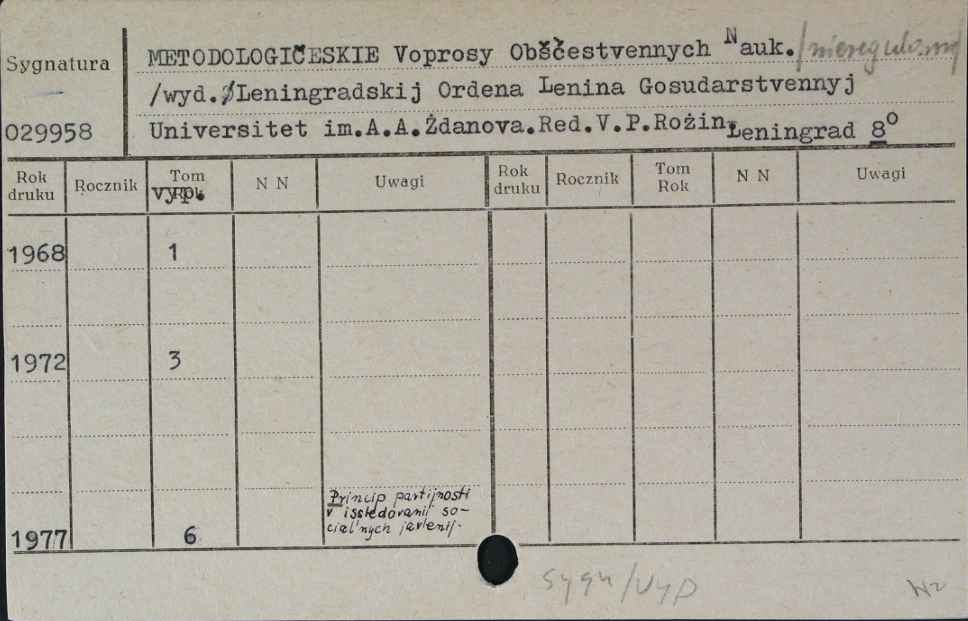 Sygnatura
029958
METODOLOGIČESKIE Voprosy Obščestvennych Nauk. /nieregularne/
/wyd. Leningradskij Ordena Lenina Gosudarstvennyj
Universitet im.A.A.Ždanova.Red.V.P.Rožin. Leningrad 8°
Rok druku Rocznik Tom Rok vyp. N N Uwagi Rok druku Rocznik Tom Rok N N Uwagi
1968 1
1972 3
Princip partijnosti
v issledovanii so-
cial'nych javlenij.
1977 6
sygn/vyp